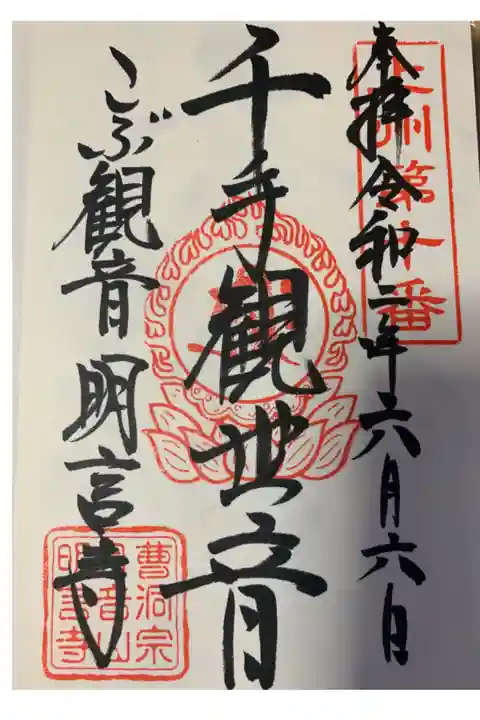 奉拝令和二年六月六日
千手観世音
こぶ観音明言寺
州第十番
曹洞宗
音山
明言寺